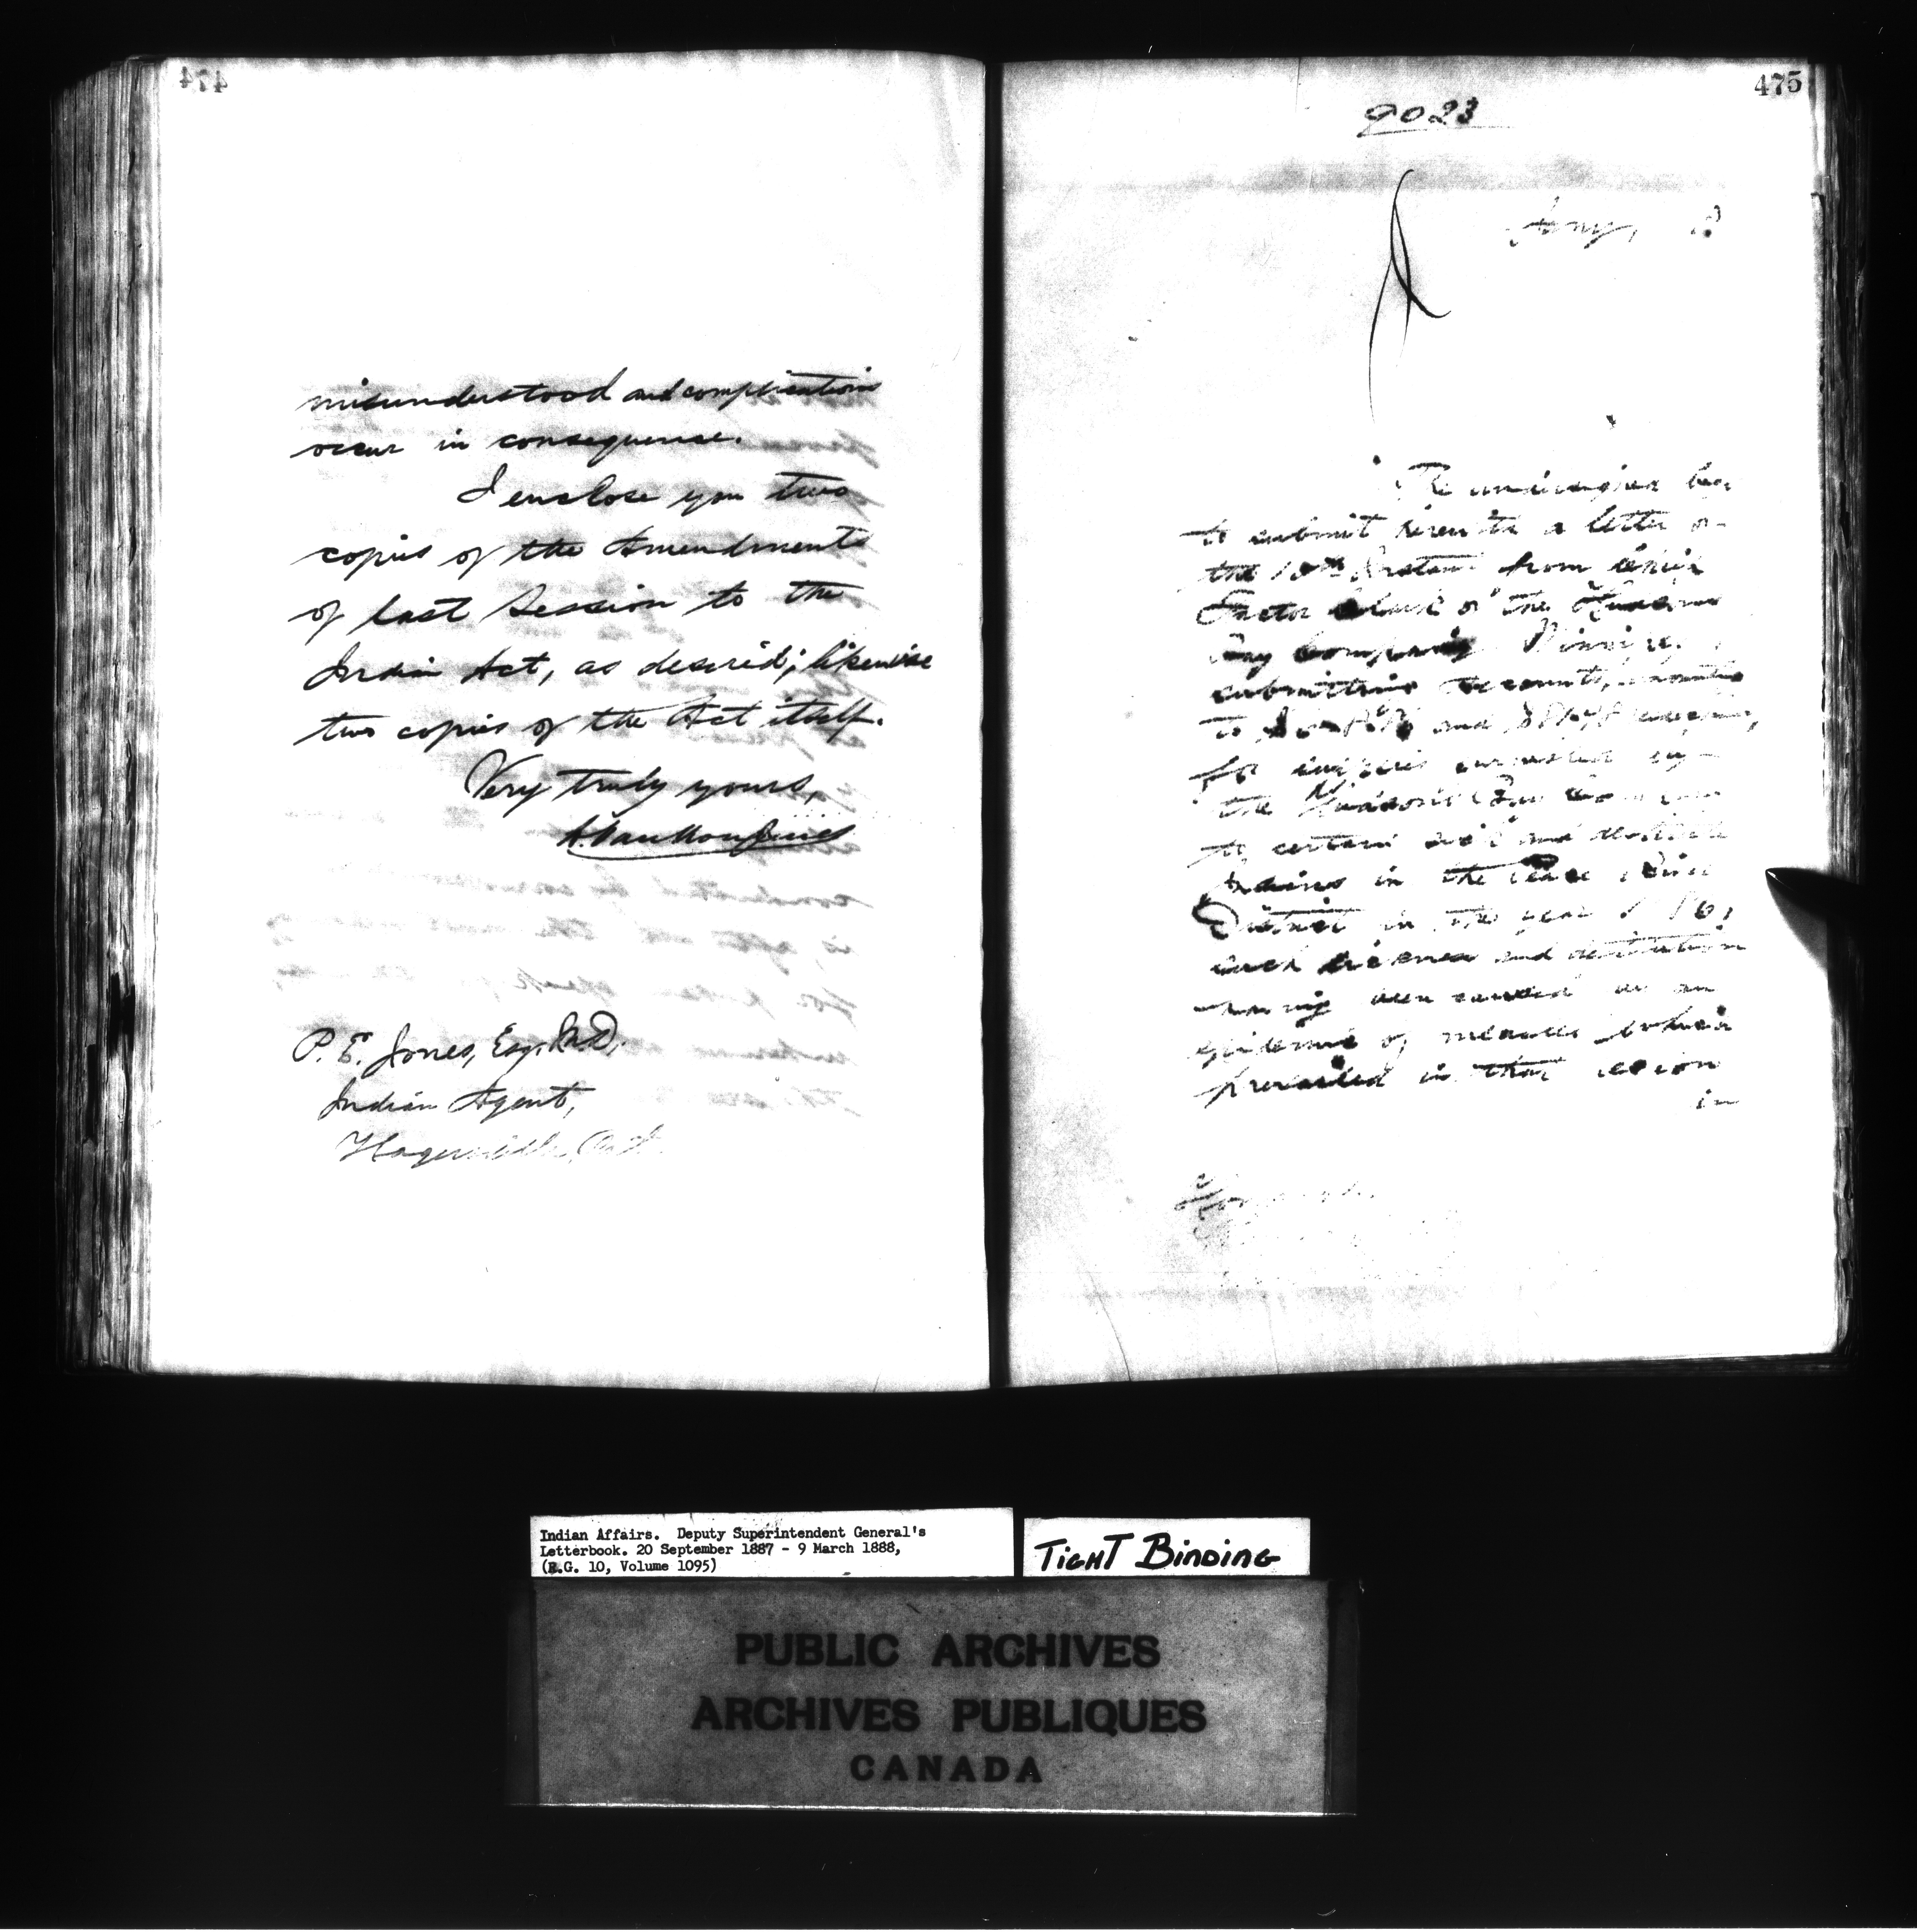 474
misunderstood and complications
occur in consequence.
I enclose you two
copies of the Amendments
of last Session to the
Indian Act, as desired; likewise
two copies of the Act itself.
Very truly yours,
L. Vankoughnet
P. E. Jones, Esq. M.D.,
Indian Agent,
Hagersville, Ont.
475
9023
The undersigned begs
to submit herewith a letter of
the 10th Instant from Chief
Factor of the Hudsons
Bay Company Winnipeg
submitting accounts, amounting
to and
for supplies furnished by
the Hudson's Bay Company
to certain sick and destitute
Indians in the Peace River
District in the year
such sickness and destitution
having been caused by an
epidemic of measles which
prevailed in that region
in
Indian Affairs. Deputy Superintendent General's
Letterbook. 20 September 1887 - 9 March 1888,
(R.G. 10, Volume 1095)
TIGHT BINDING
PUBLIC ARCHIVES
ARCHIVES PUBLIQUES
CANADA